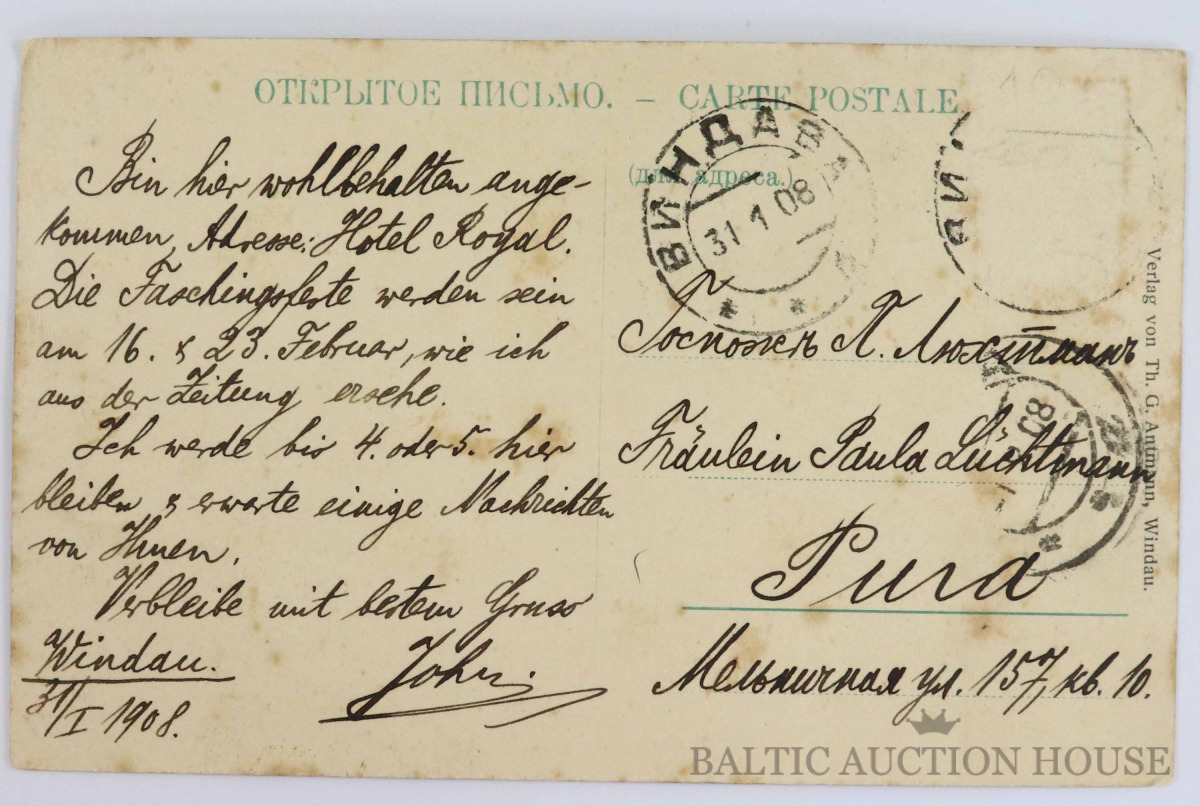 ОТКРЫТОЕ ПИСЬМО. – CARTE POSTALE
(для адреса.)
Bin hier wohlbehalten ange-
kommen, Adresse: Hotel Royal.
Die Faschingsfeste werden sein
am 16. & 23. Februar, wie ich
aus der Zeitung ersehe.
Ich werde bis 4. oder 5. hier
bleiben & erwarte einige Nachrichten
von Ihnen.
Verbleibe mit bestem Gruss
John.
Windau.
31/I 1908.
ВИНДАВА
31 1 08
Госпожѣ П. Люхтманъ
Fräulein Paula Lüchtmann
Рига
Мельничная ул. 157, кв. 10.
ВИ
08
Verlag von Th. G. Antmann, Windau.
BALTIC AUCTION HOUSE